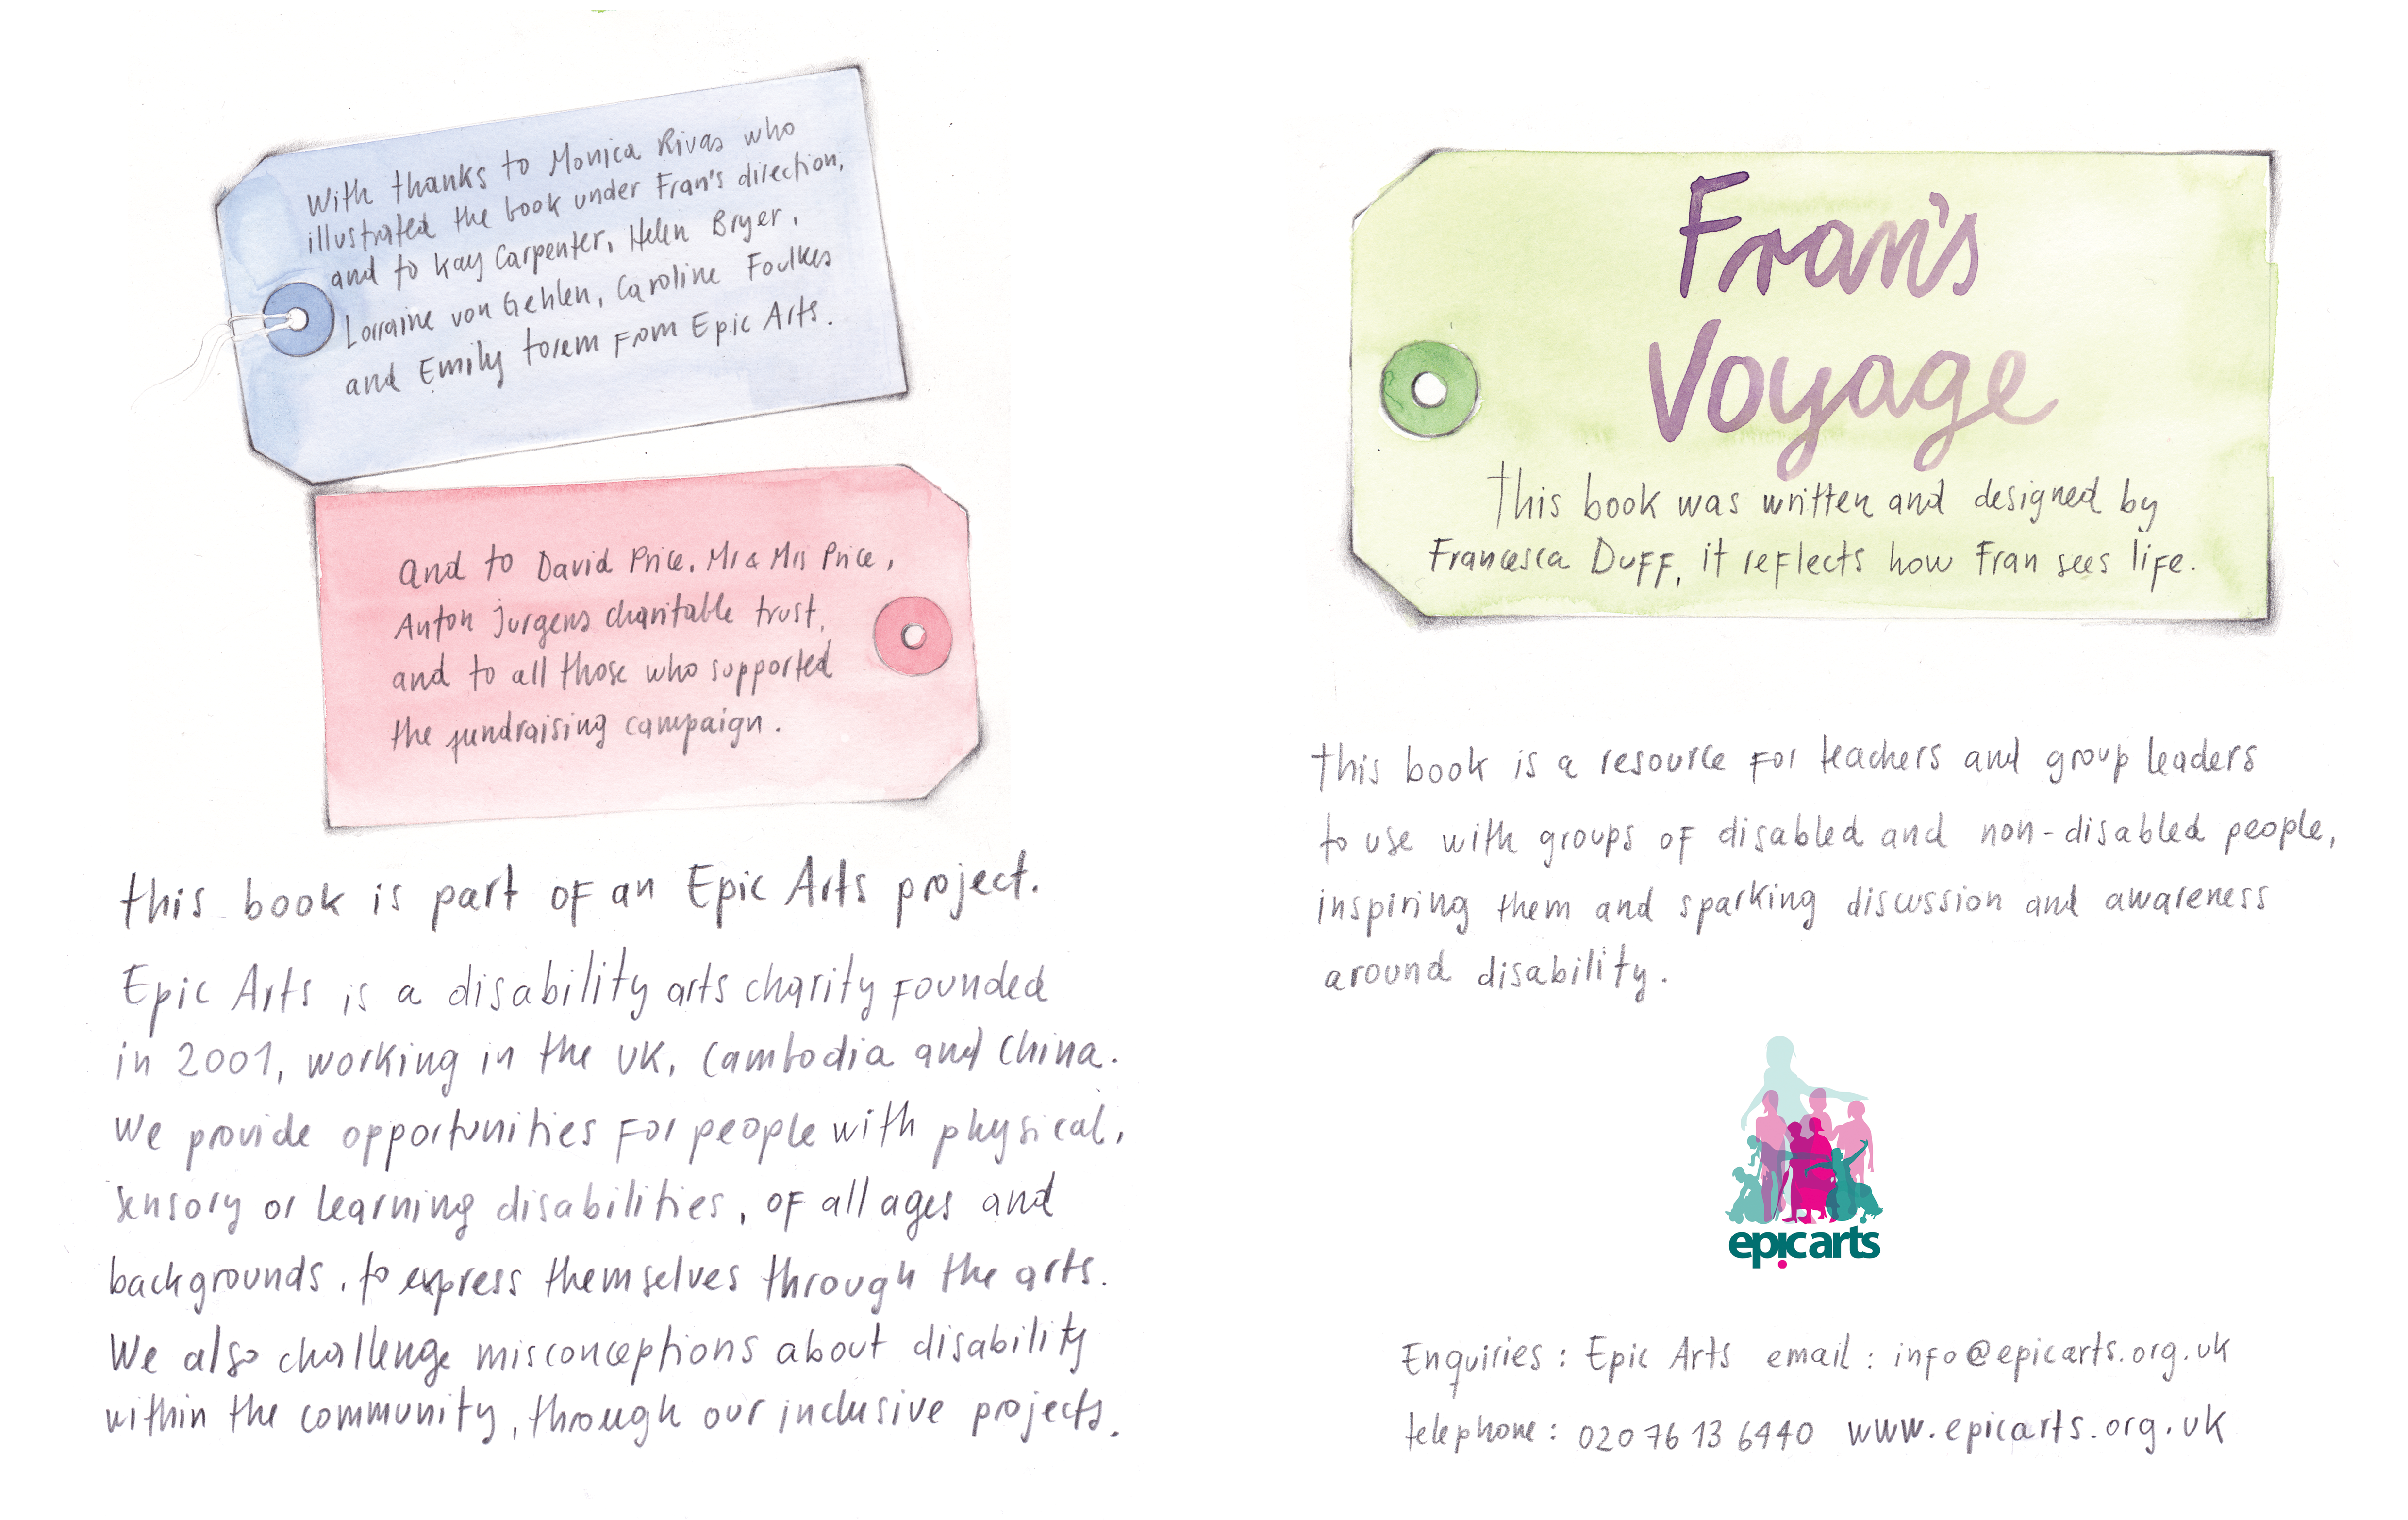 With thanks to Monica Rivas who
illustrated the book under Fran's direction,
and to Kay Carpenter, Helen Bryer,
Lorraine von Gehlen, Caroline Foulkes
and Emily torem from Epic Arts.
and to David Price, Mr & Mrs Price,
Anton jurgens charitable trust,
and to all those who supported
the fundraising campaign.
this book is part of an Epic Arts project.
Epic Arts is a disability arts charity founded
in 2001, working in the UK, Cambodia and China.
We provide opportunities for people with physical,
sensory or learning disabilities, of all ages and
backgrounds, to express themselves through the arts.
We also challenge misconceptions about disability
within the community, through our inclusive projects.
Fran's
Voyage
this book was written and designed by
Francesca Duff, it reflects how Fran sees life.
this book is a resource for teachers and group leaders
to use with groups of disabled and non-disabled people,
inspiring them and sparking discussion and awareness
around disability.
epic arts
Enquiries: Epic Arts email: info@epicarts.org.uk
telephone: 020 76 13 6440 www.epicarts.org.uk